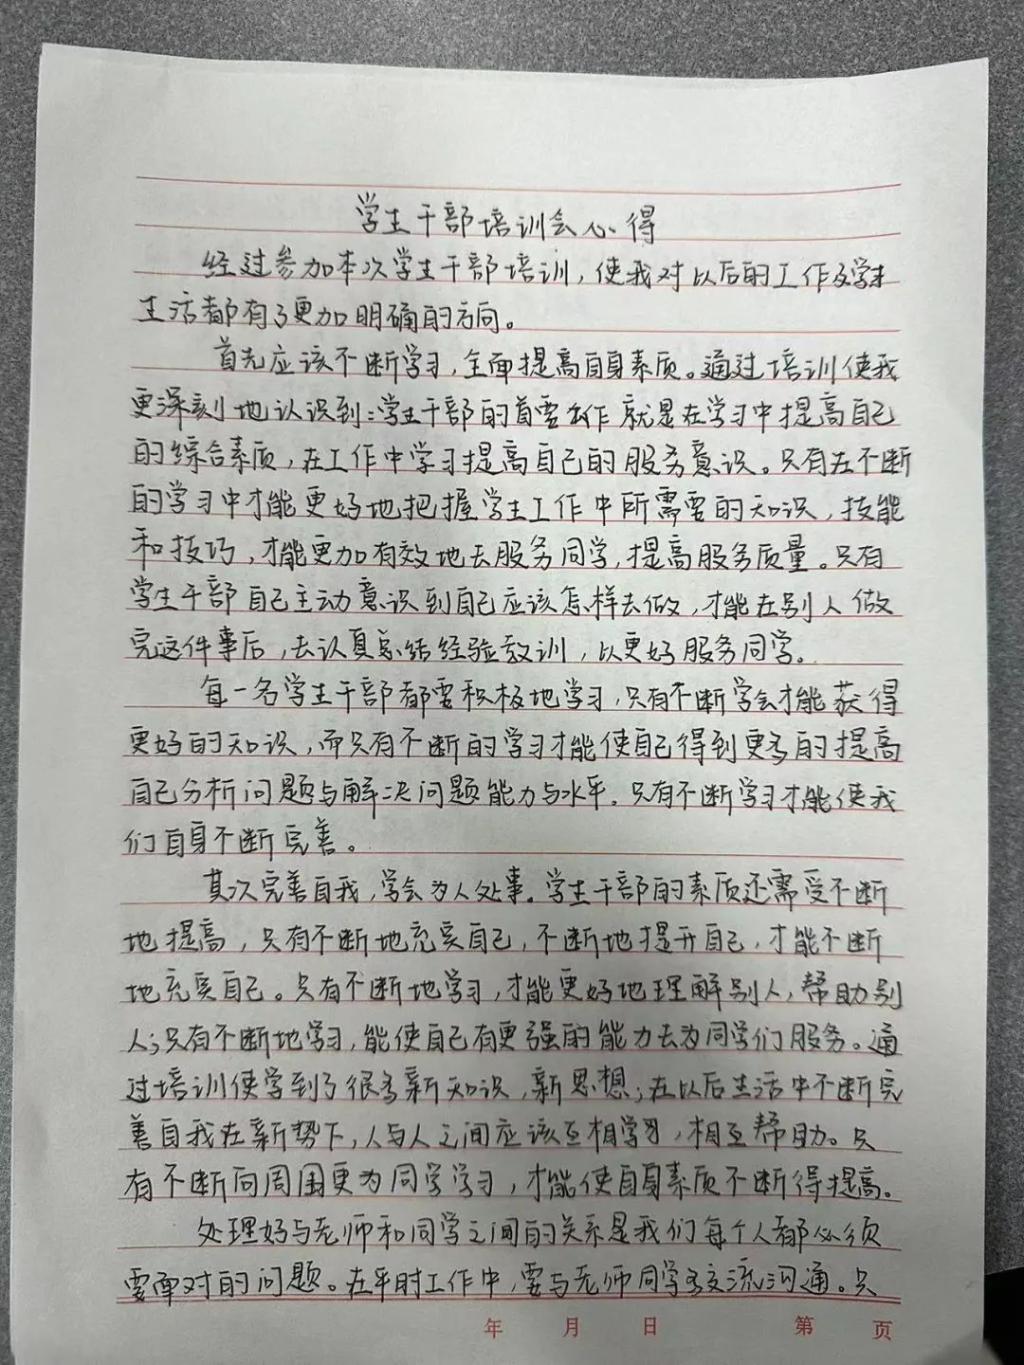 学生干部培训会心得
经过参加本次学生干部培训，使我对以后的工作及学生
生活都有了更加明确的方向。
首先应该不断学习，全面提高自身素质。通过培训使我
更深刻地认识到：学生干部的首要工作就是在学习中提高自己
的综合素质，在工作中学习提高自己的服务意识。只有在不断
的学习中才能更好地把握学生工作中所需要的知识，技能
和技巧，才能更加有效地去服务同学，提高服务质量。只有
学生干部自己主动意识到自己应该怎样去做，才能在别人做
完这件事后，去认真总结经验教训，以更好服务同学。
每一名学生干部都要积极地学习，只有不断学会才能获得
更好的知识，而只有不断的学习才能使自己得到更多的提高
自己分析问题与解决问题能力与水平。只有不断学习才能使我
们自身不断完善。
其次完善自我，学会为人处事。学生干部的素质还需受不断
地提高，只有不断地充实自己，不断地提升自己，才能不断
地充实自己。只有不断地学习，才能更好地理解别人，帮助别
人；只有不断地学习，能使自己有更强的能力去为同学们服务。通
过培训使学到了很多新知识，新思想；在以后生活中不断完
善自我在新势下，人与人之间应该互相学习，相互帮助。只
有不断向周围更为同学学习，才能使自身素质不断得提高。
处理好与老师和同学之间的关系是我们每个人都必须
要面对的问题。在平时工作中，要与老师同学多交流沟通。只
年 月 日 第 页